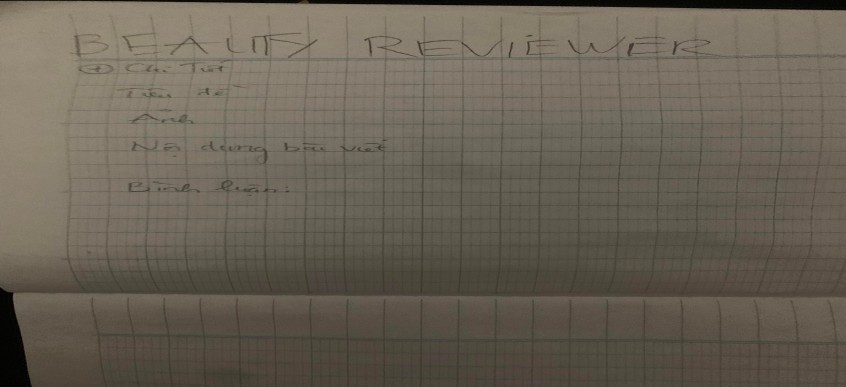 BEAUTY REVIEWER
+ Chi Tiết
Tiêu đề
Ảnh
Nộ dung bài viết
Bình luận: